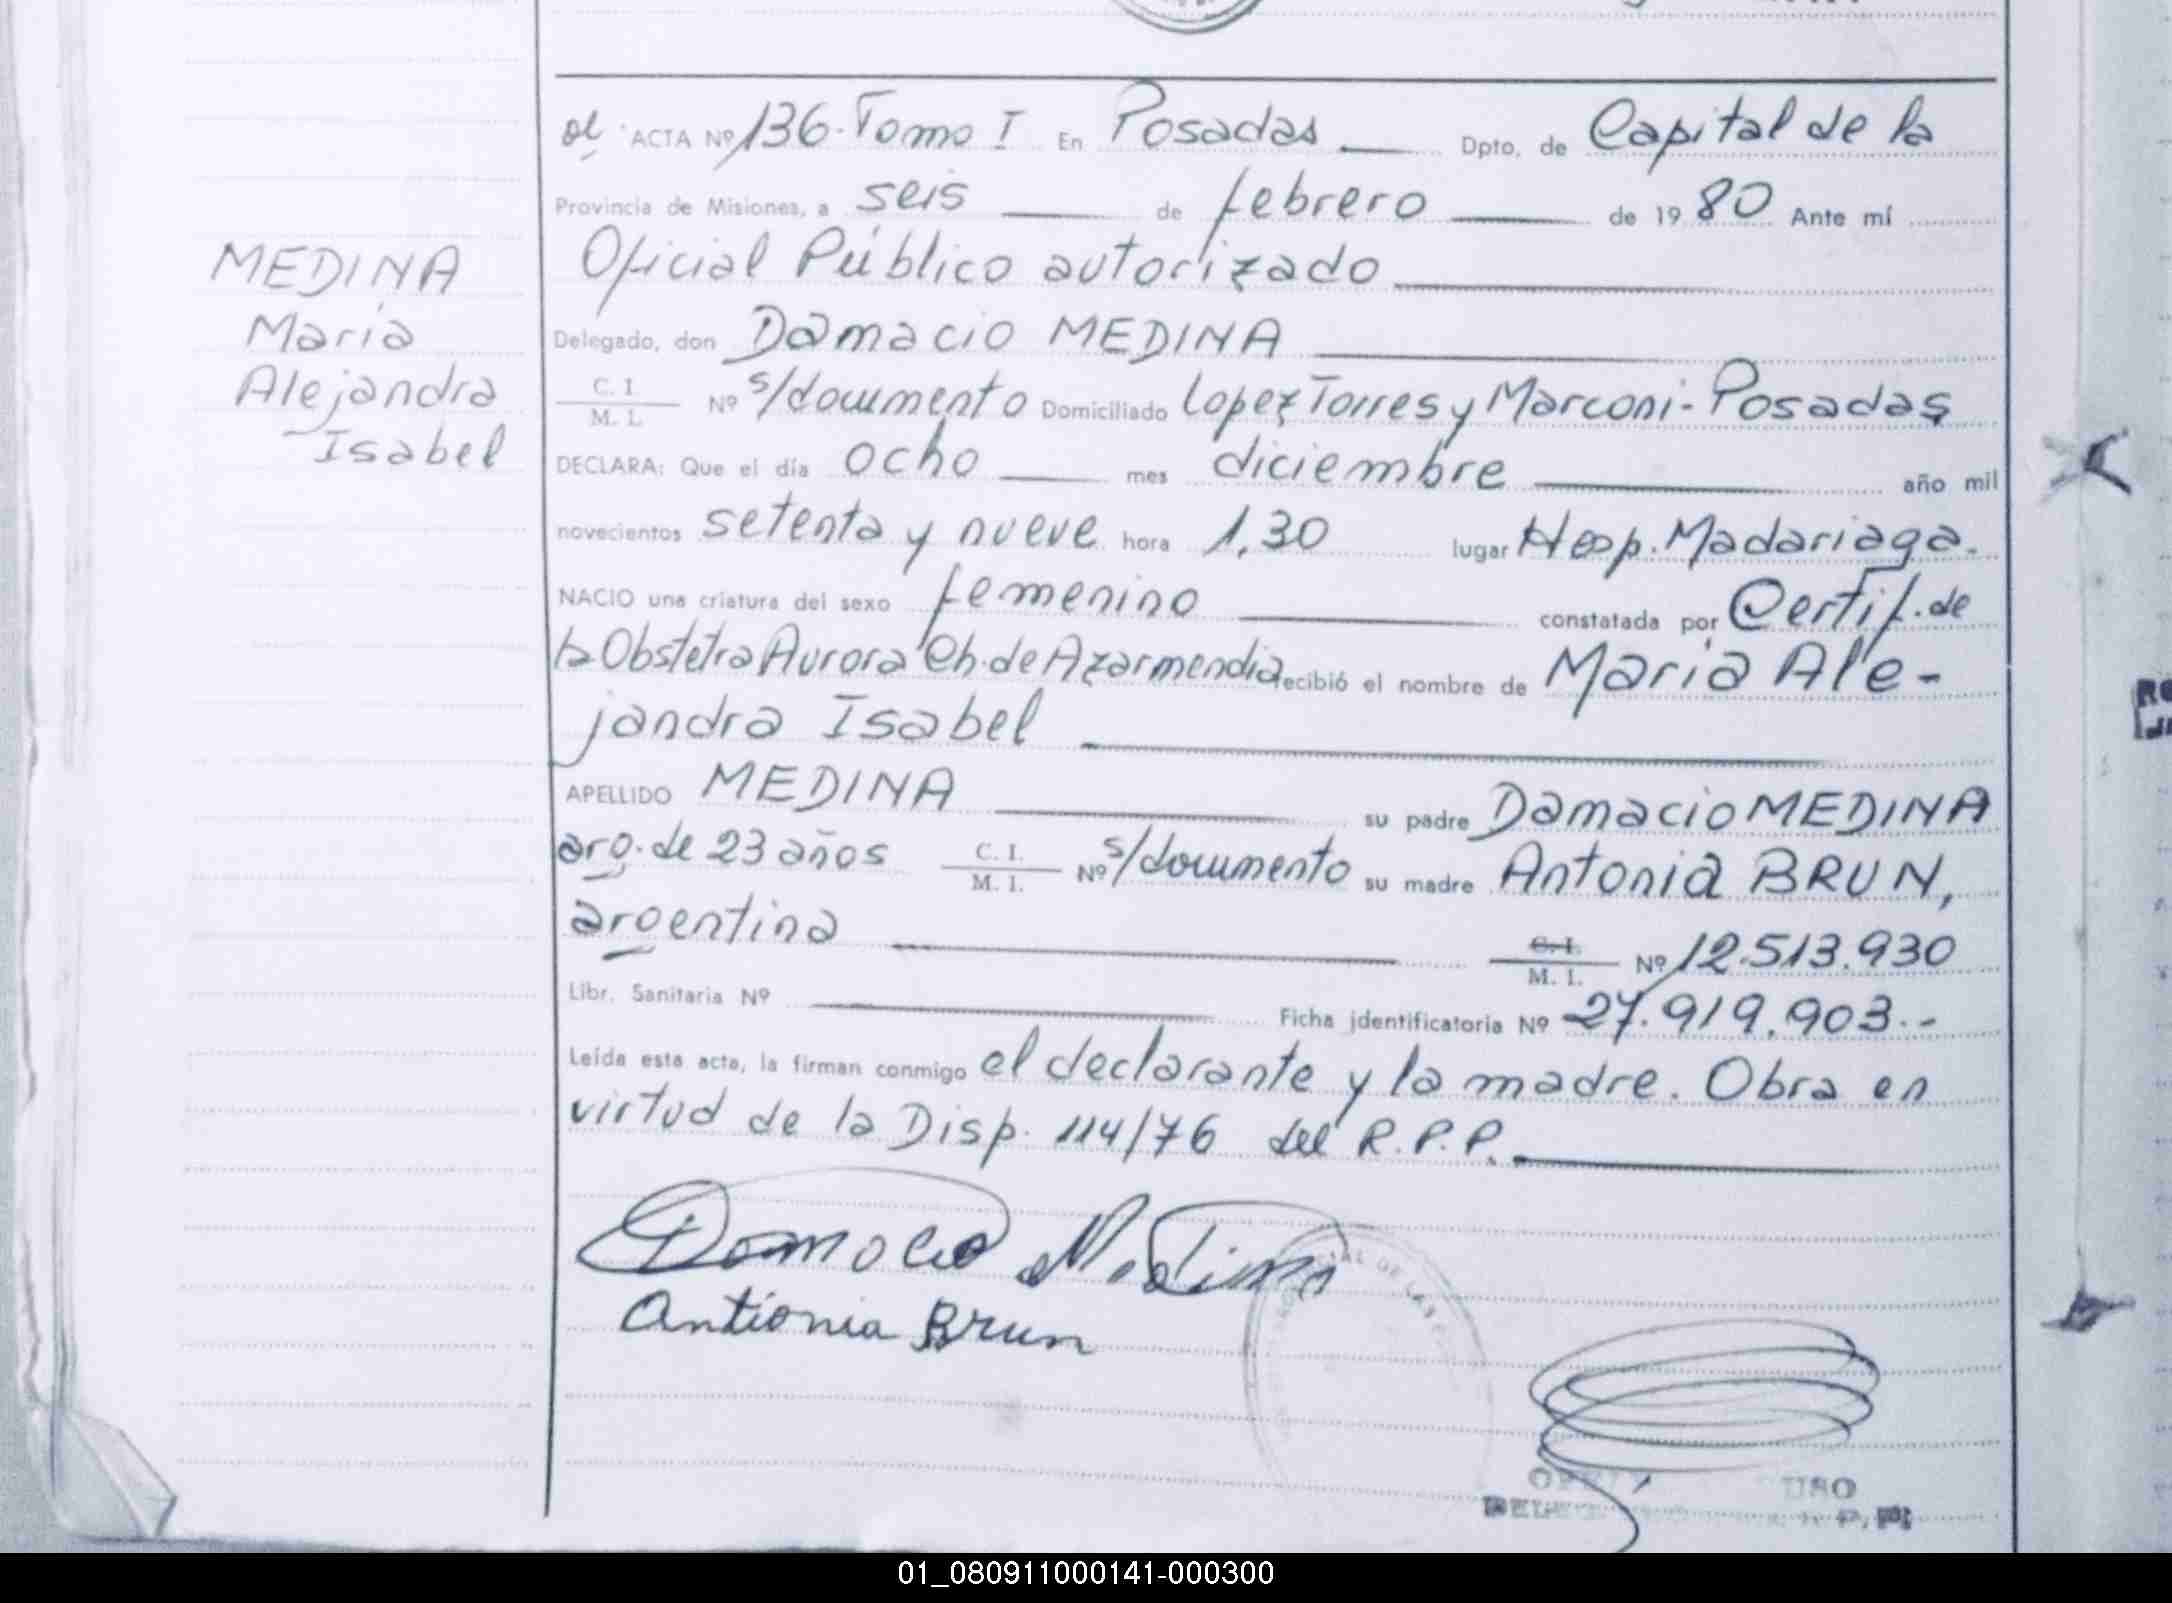 al ACTA Nº 136. Tomo I En Posadas Dpto. de Capital de la
Provincia de Misiones, a seis de febrero de 1980 Ante mí
Oficial Público autorizado
Delegado, don Damacio MEDINA
C. I. / M. I. Nº s/documento Domiciliado Lopez Torres y Marconi - Posadas
DECLARA: Que el día ocho mes diciembre año mil
novecientos setenta y nueve hora 1,30 lugar Hosp. Madariaga.
NACIO una criatura del sexo femenino constatada por Certif. de
la Obstetra Aurora Ch. de Azarmendia recibió el nombre de Maria Ale-
jandra Isabel
APELLIDO MEDINA su padre Damacio MEDINA
arg. de 23 años C. I. / M. I. Nº s/documento su madre Antonia BRUN,
argentina C. I. / M. I. Nº 12.513.930
Libr. Sanitaria Nº Ficha jdentificatoria Nº 27.919.903.-
Leída esta acta, la firman conmigo el declarante y la madre. Obra en
virtud de la Disp. 114/76 del R.P.P.
MEDINA
Maria
Alejandra
Isabel
Damacio Medina
Antionia Brun
01_080911000141-000300